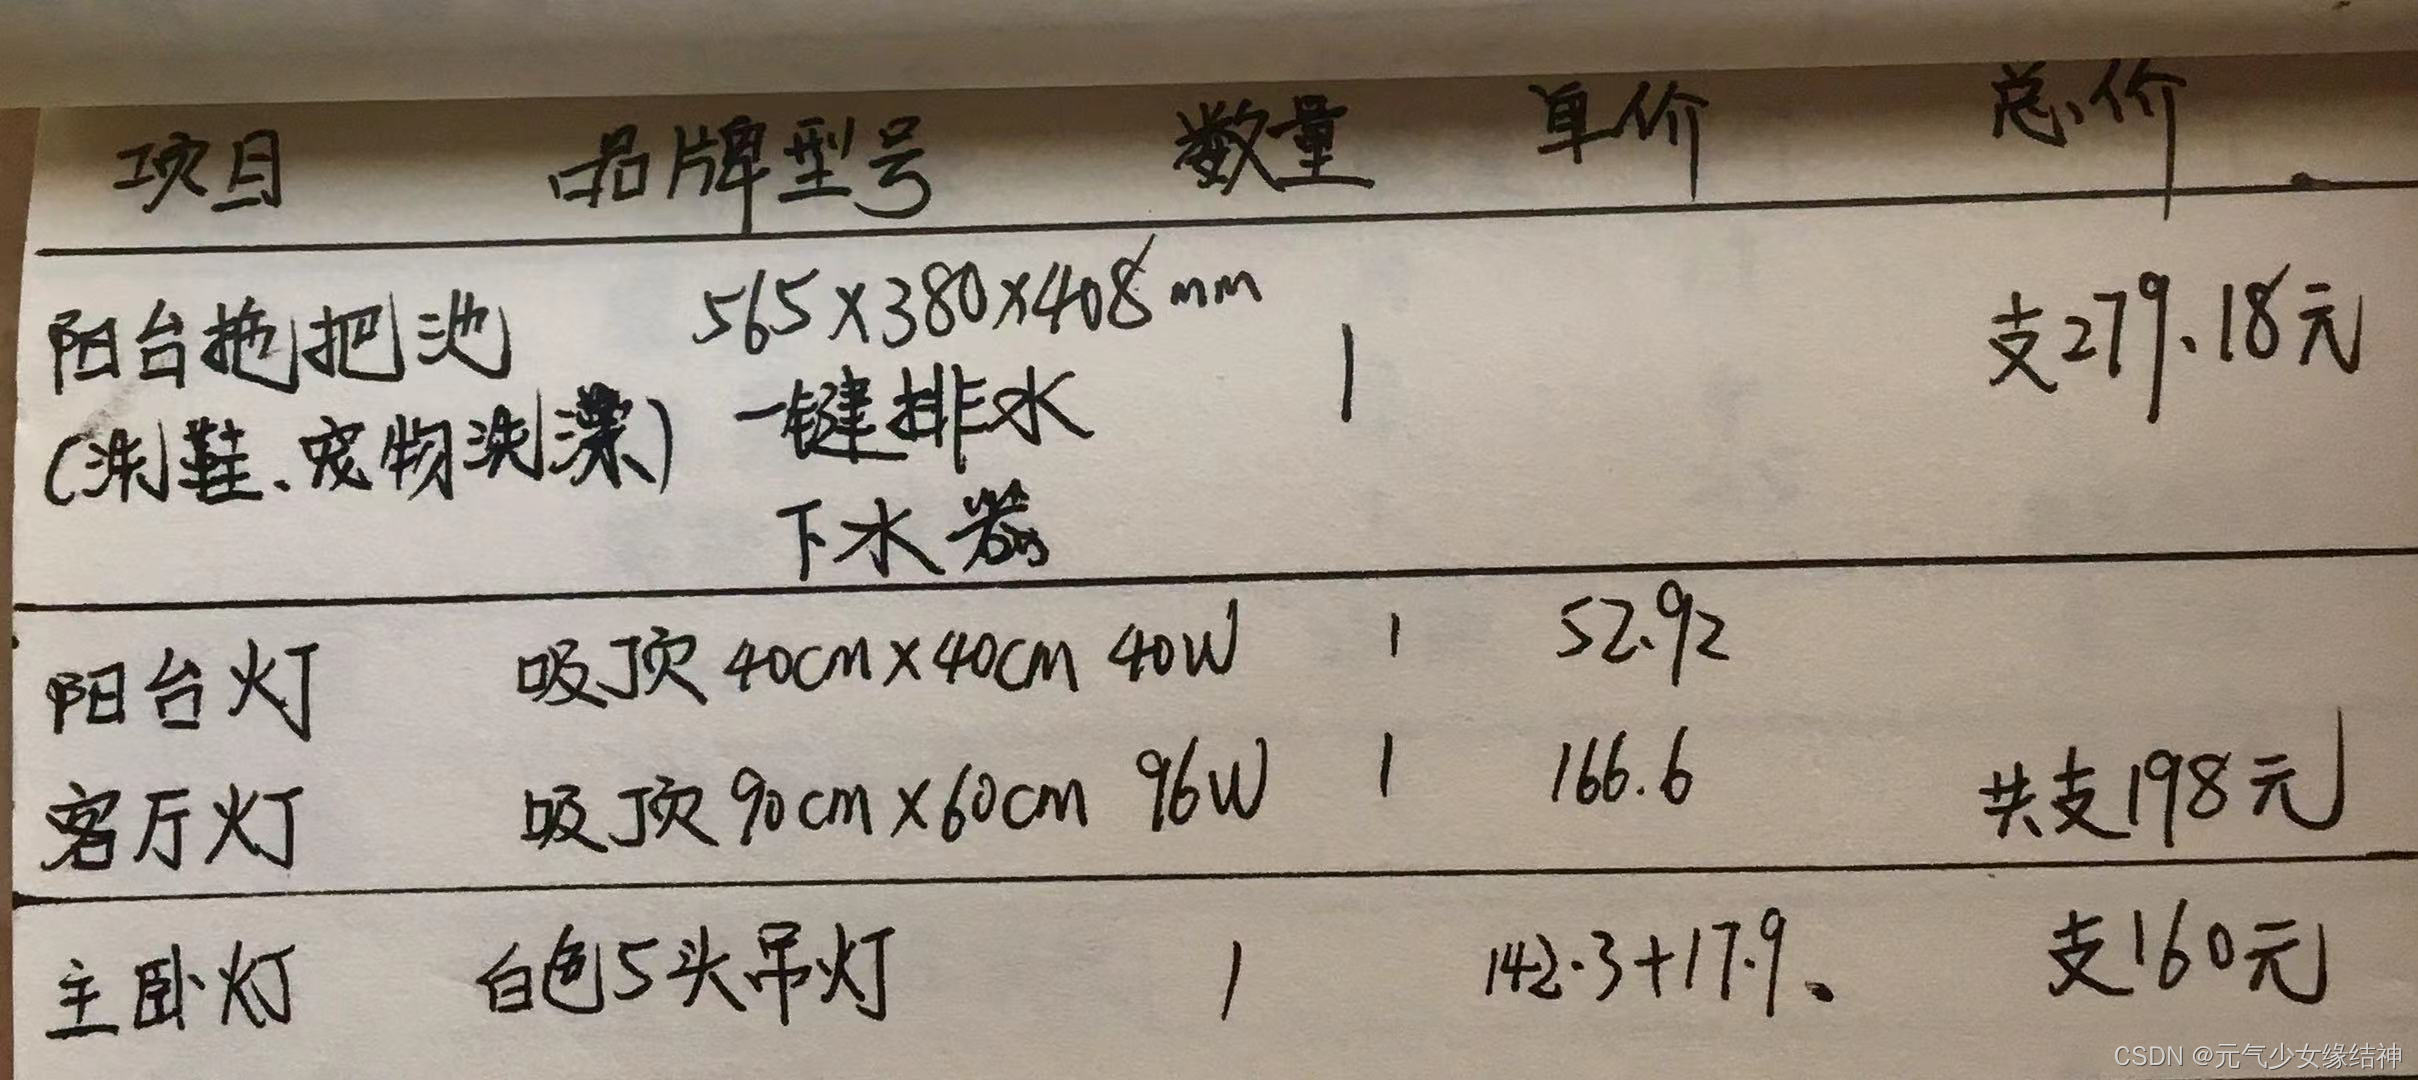 项目 品牌型号 数量 单价 总价
阳台拖把池 565×380×408mm 1 支279.18元
(洗鞋、宠物洗澡) 一键排水
下水器
阳台灯 吸顶 40cm×40cm 40W 1 52.92
客厅灯 吸顶 90cm×60cm 96W 1 166.6 共支198元
主卧灯 白色5头吊灯 1 142.3+17.9、 支160元
CSDN @元气少女缘结神